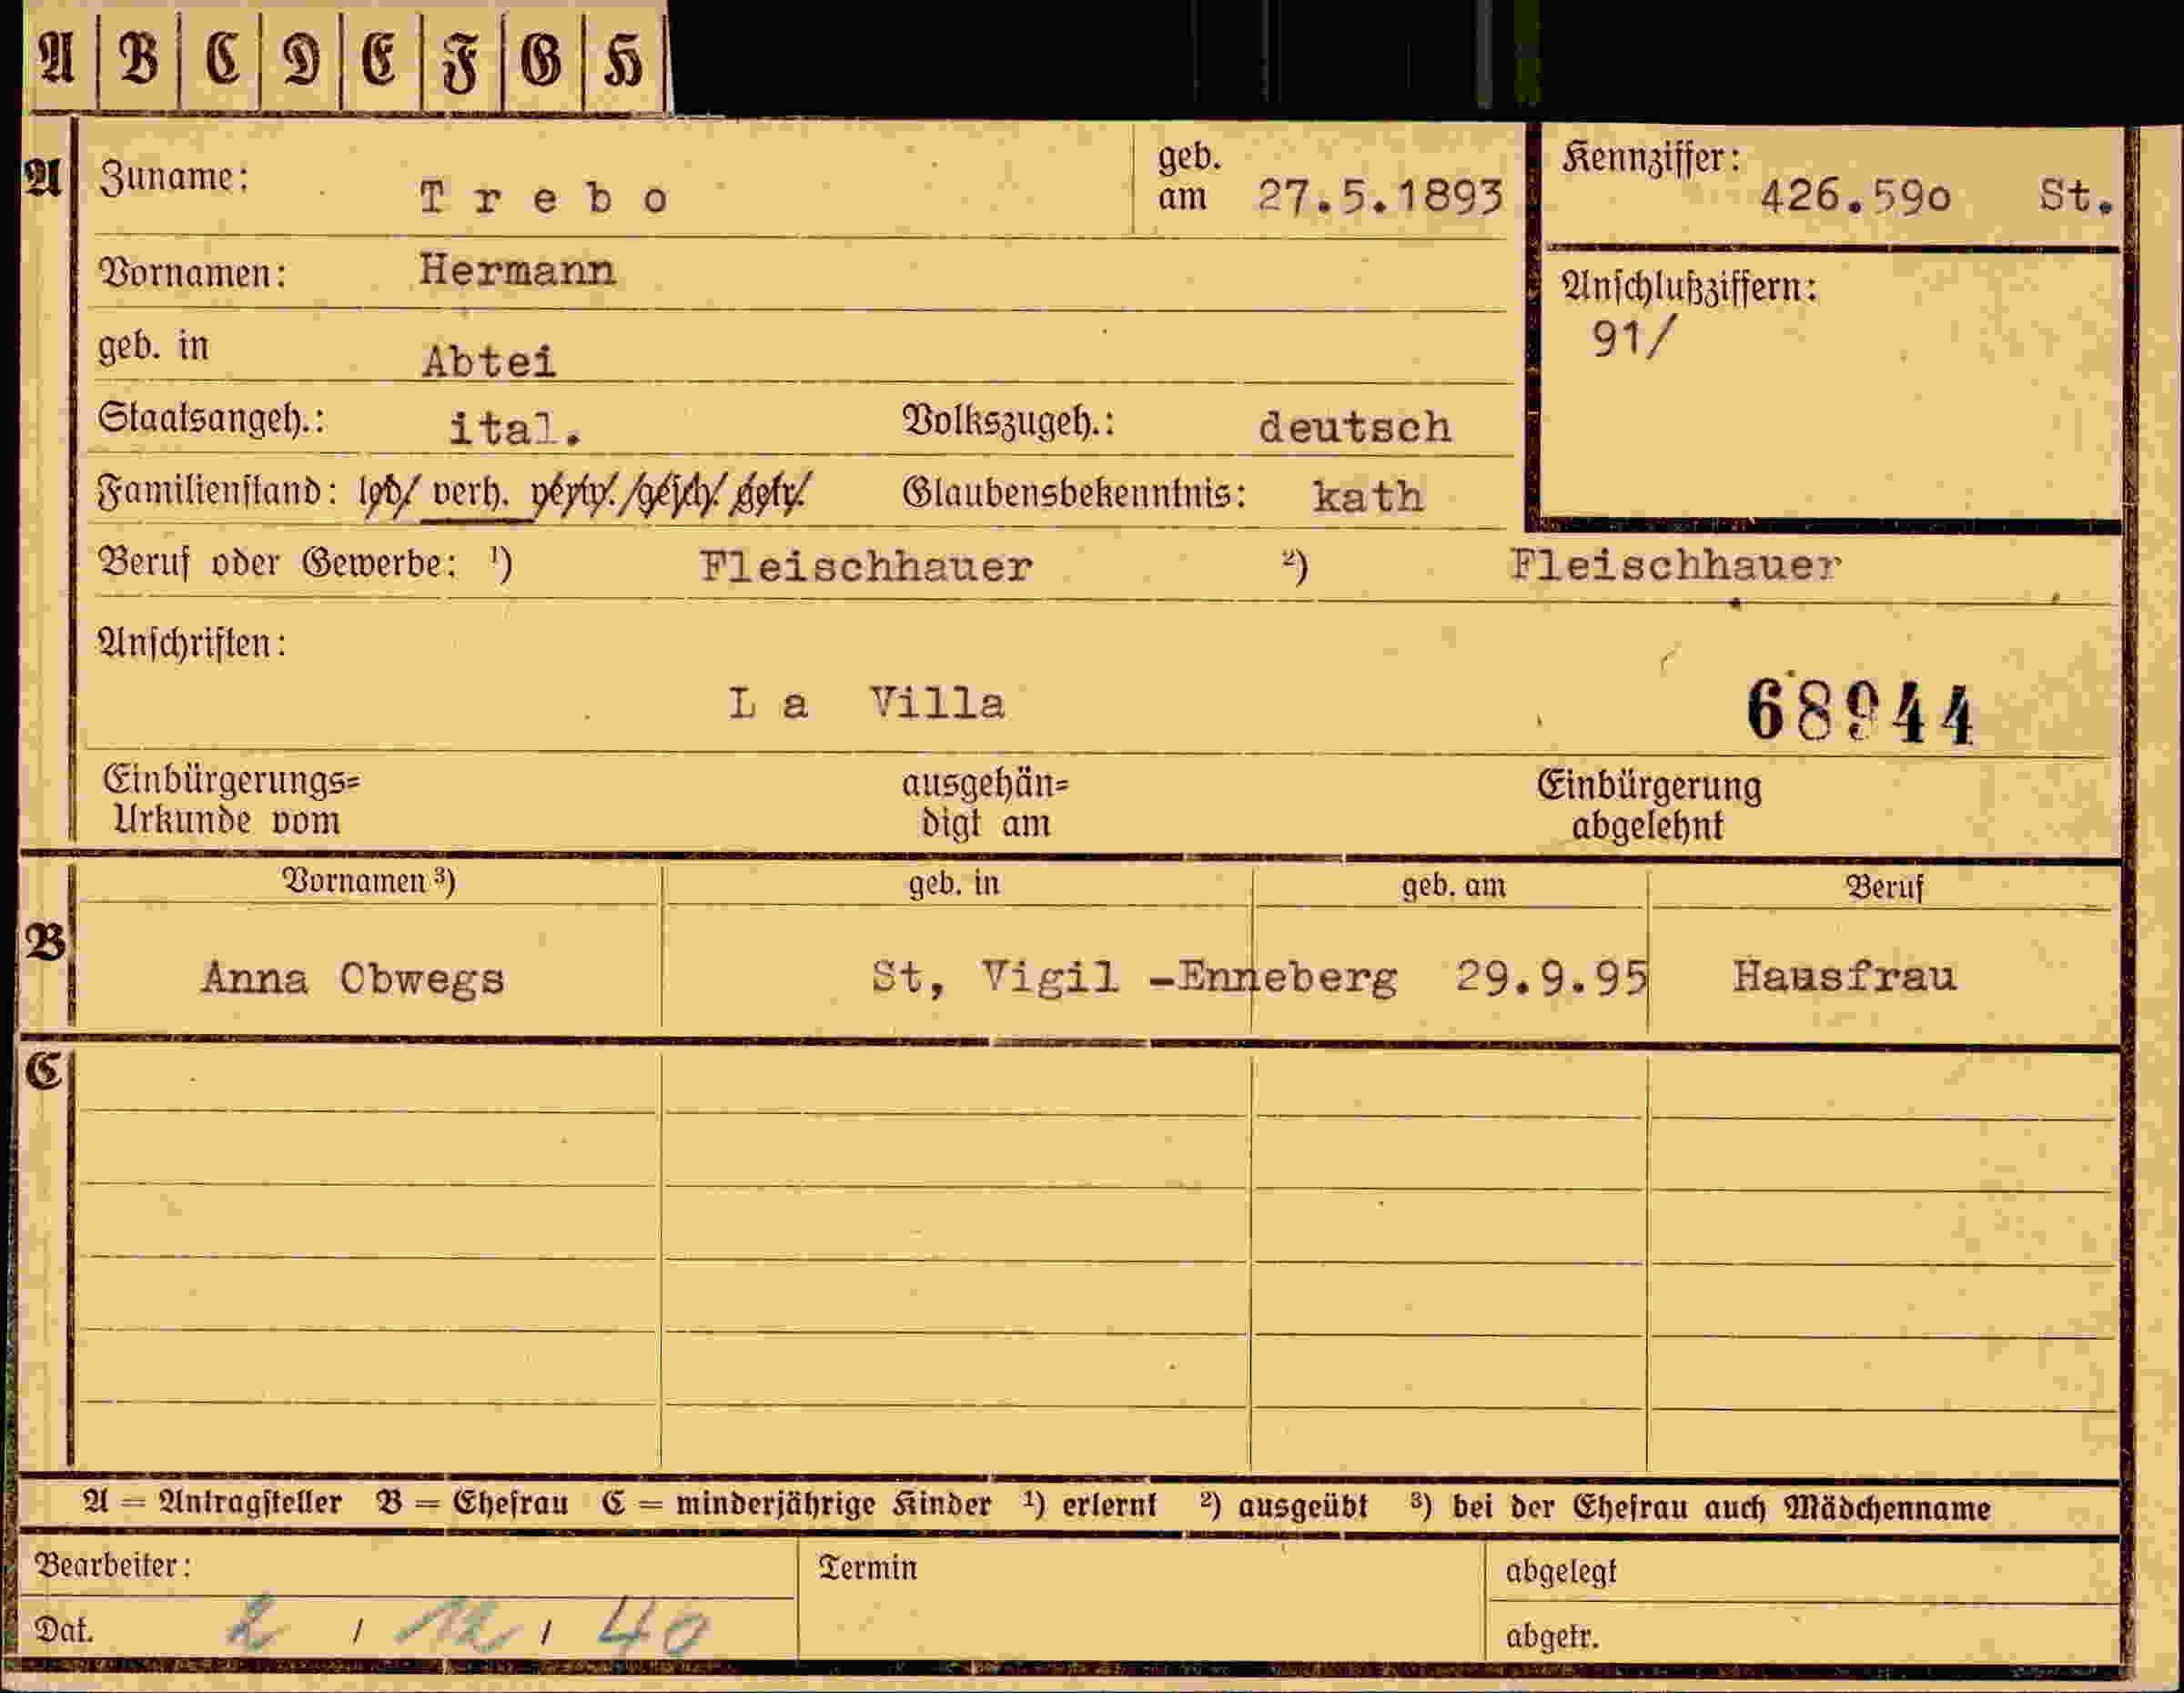 A B C D E F G H
A Zuname: Trebo geb. am 27.5.1893 Kennziffer: 426.590 St.
Vornamen: Hermann Anschlußziffern:
91/
geb. in Abtei
Staatsangeh.: ital. Volkszugeh.: deutsch
Familienstand: led. verh. verw. gesch. getr. Glaubensbekenntnis: kath
Beruf oder Gewerbe: ¹) Fleischhauer ²) Fleischhauer
Anschriften:
La Villa 68944
Einbürgerungs= ausgehän= Einbürgerung
Urkunde vom digt am abgelehnt
Vornamen ³) geb. in geb. am Beruf
B Anna Obwegs St, Vigil -Enneberg 29.9.95 Hausfrau
C
A = Antragsteller B = Ehefrau C = minderjährige Kinder ¹) erlernt ²) ausgeübt ³) bei der Ehefrau auch Mädchenname
Bearbeiter: Termin abgelegt
Dat. 2 / 12 / 40 abgetr.